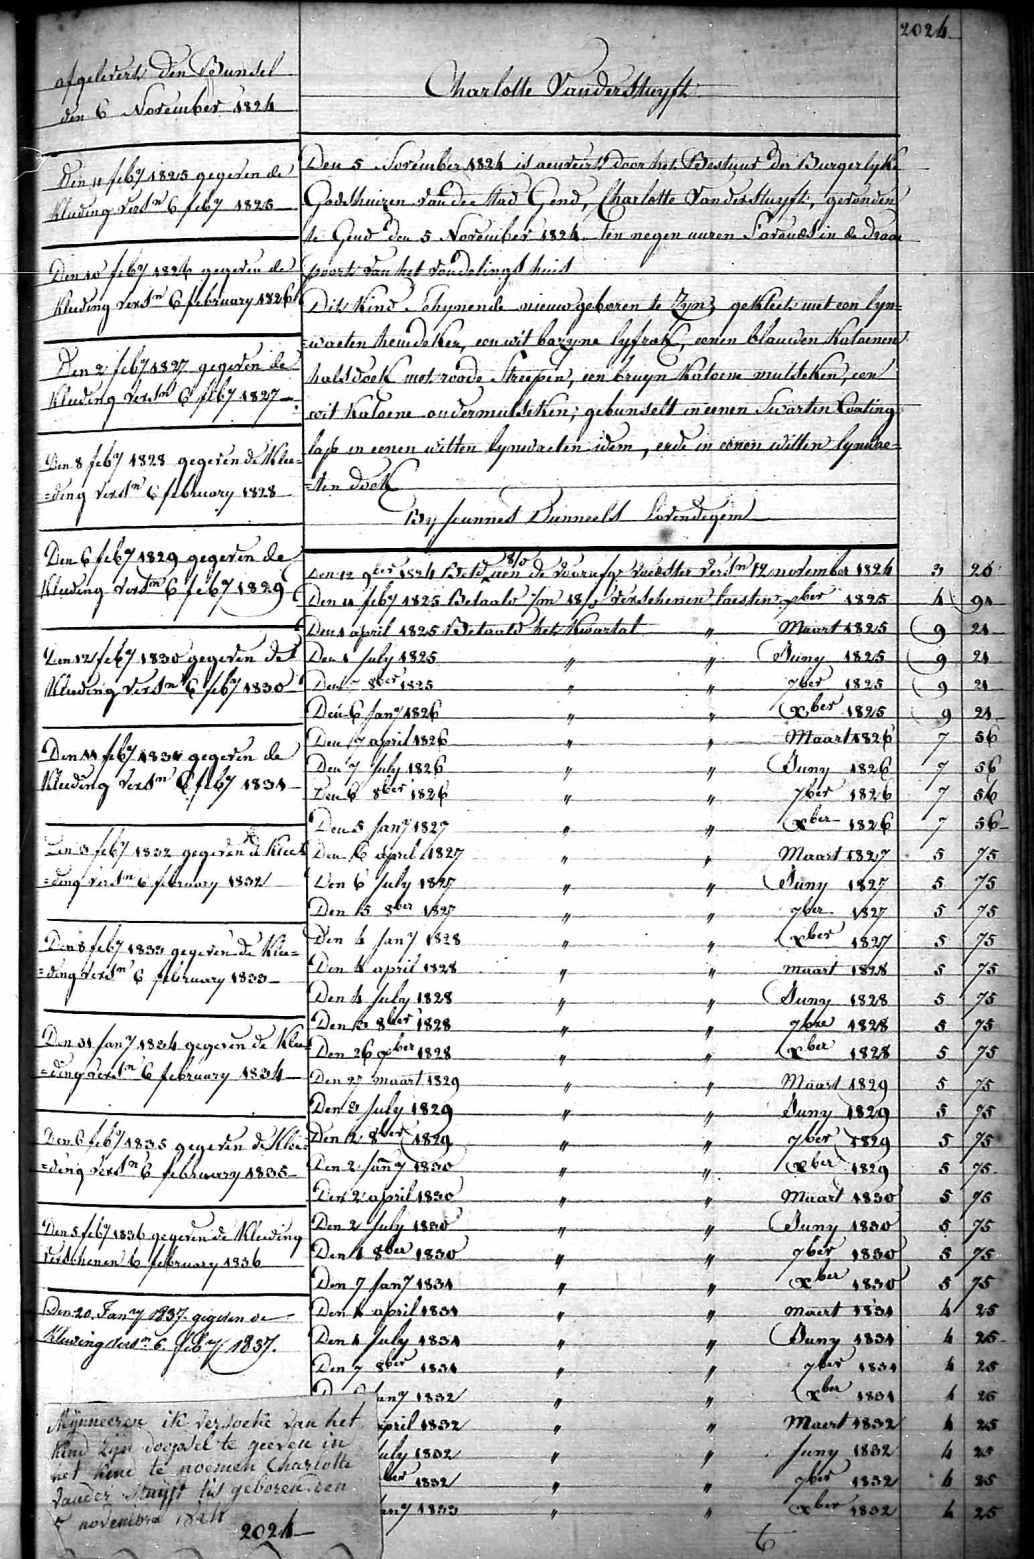 2024
afgelevert den Bundel
den 6 November 1824
Charlotte Vanderstuyft
Den 11 feb.y 1825 gegeven de
kleding versn 6 feb.y 1825
Den 10 feb.y 1826 gegeven de
kleeding versn 6 february 1826
Den 2 feb.y 1827 gegeven de
kleeding versn 6 feb.y 1827
Den 8 feb.y 1828 gegeven de klee-
=ding versn 6 february 1828
Den 6 feb.y 1829 gegeven de
kleeding versn 6 feb.y 1829
Den 12 feb.y 1830 gegeven de
kleeding versn 6 feb.y 1830
Den 11 feb.y 1831 gegeven de
kleeding versn 6 feb.y 1831
Den 3 feb.y 1832 gegeven de klee-
=ding versn 6 february 1832
Den 8 feb.y 1833 gegeven de klee-
=ding versn 6 february 1833
Den 31 jan.y 1834 gegeven de klee-
=ding versn 6 february 1834
Den 6 feb.y 1835 gegeven de klee-
=ding versn 6 february 1835
Den 5 feb.y 1836 gegeven de kleeding
verschenen 6 february 1836
Den 20 Jan.y 1837 gegeven de
kleeding versn 6 feb.y 1837.
Mynneeren ik versoeke van het
kind zijn doopsel te geeven en
het kind te noemen Charlotte
Vander Stuyft tis geboren den
5 novembre 1824
2024
Den 5 November 1824 is aenveirt door het Bestuur der Burgerlyke
Godshuizen van de stad Gend, Charlotte Vanderstuyft, gevonden
te Gend den 5 November 1824 ten negen uuren s'avonds in de draei
poort van het vondelings huis
Dit kind schynende nieuw geboren te zyn, gekleet met een lyn-
=waeten hemdeken, een wit bazyne lyfrok, eenen blauwen katoenen
halsdoek met roode streepen, een bruyn katoene mutseken, een
wit katoene ondermutseken; gebunselt in eenen swarten Coating
lap en eenen witten lynwaeten idem, ende in eenen witten lynwae-
=ten doek
By Joannes Dünneels Lovendegem
Den 12 9ber 1824 Betd aen de voorafge voedster versn 12 november 1824 3 26
Den 11 feb.y 1825 Betaald verschenen xber 1825 4 91
Den 1 april 1825 Betaald het kwartal " Maart 1825 9 21
Den 1 July 1825 " " Juny 1825 9 21
Den 7 8ber 1825 " " 7ber 1825 9 21
Den 6 Jany 1826 " " xber 1825 9 21
Den 7 april 1826 " " Maart 1826 7 56
Den 7 July 1826 " " Juny 1826 7 56
Den 6 8ber 1826 " " 7ber 1826 7 56
Den 5 Jany 1827 " " xber 1826 7 56
Den 6 april 1827 " " Maart 1827 5 75
Den 6 July 1827 " " Juny 1827 5 75
Den 15 8ber 1827 " " 7ber 1827 5 75
Den 4 Jany 1828 " " xber 1827 5 75
Den 4 april 1828 " " maart 1828 5 75
Den 4 July 1828 " " Juny 1828 5 75
Den 3 8ber 1828 " " 7ber 1828 5 75
Den 26 xber 1828 " " xber 1828 5 75
Den 27 maart 1829 " " Maart 1829 5 75
Den 3 July 1829 " " Juny 1829 5 75
Den 2 8ber 1829 " " 7ber 1829 5 75
Den 2 Jany 1830 " " xber 1829 5 75
Den 2 april 1830 " " Maart 1830 5 75
Den 2 July 1830 " " Juny 1830 5 75
Den 1 8ber 1830 " " 7ber 1830 5 75
Den 7 Jany 1831 " " xber 1830 5 75
Den 1 april 1831 " " maert 1831 4 25
Den 1 July 1831 " " Juny 1831 4 25
Den 7 8ber 1831 " " 7ber 1831 4 25
any 1832 " " xber 1831 4 25
april 1832 " " Maert 1832 4 25
uly 1832 " " Juny 1832 4 25
ber 1832 " " 7ber 1832 4 25
any 1833 " " xber 1832 4 25